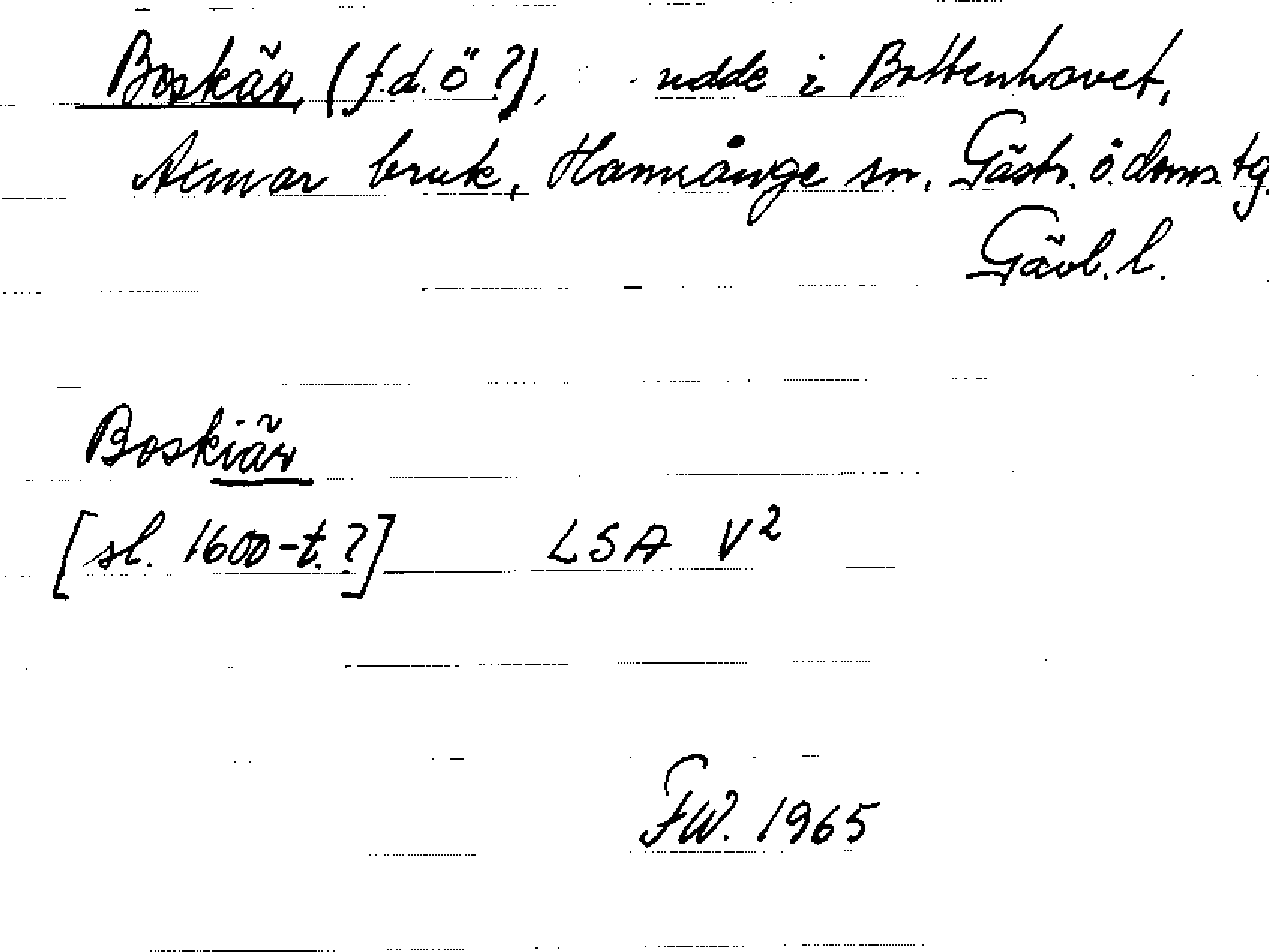 Boskär, (f.d. ö ?), udde i Bottenhavet,
Axmar bruk, Hamrånge sn. Gästr. ö. doms. tg.
Gävl. l.
Boskiär
[sl. 1600-t.?] LSA V²
FW. 1965